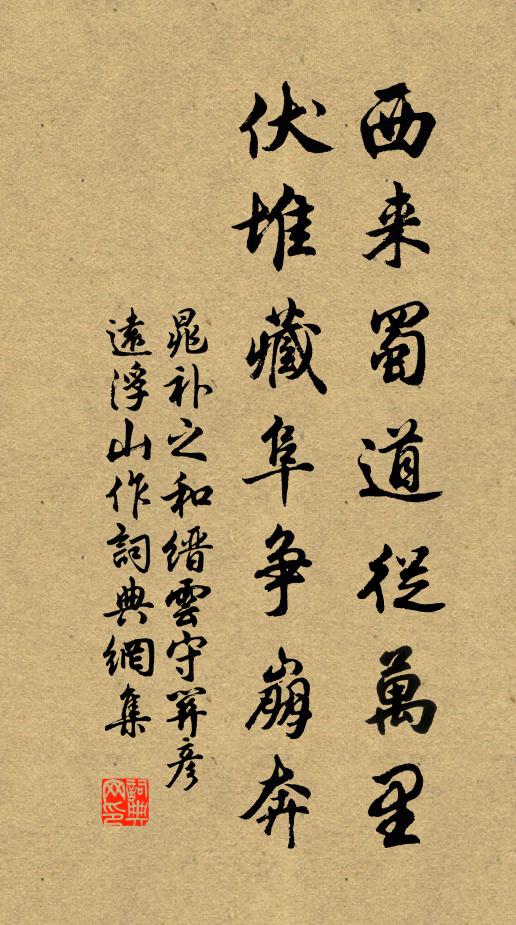 西来蜀道從萬里
伏堆藏阜争崩奔
晁补之和缙雲守關彦
遠浮山作詞典網集
詞典
网印